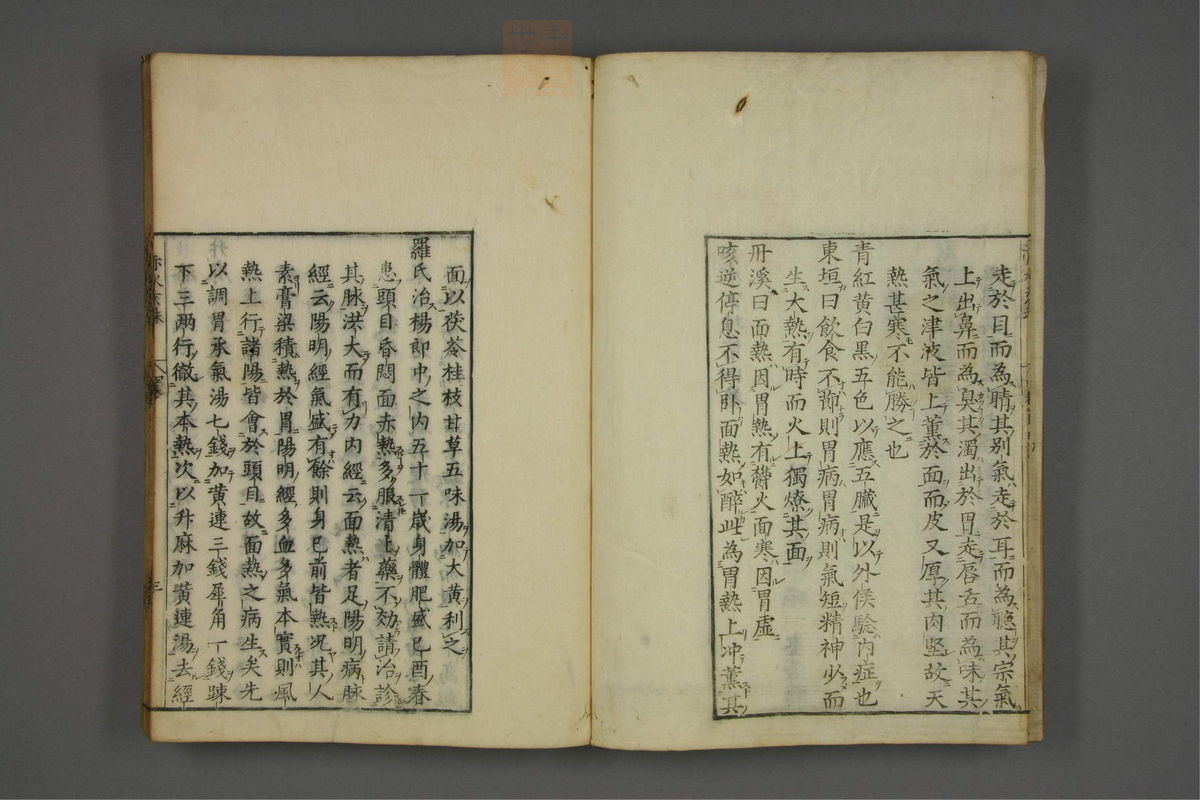 走於目而為睛其別氣走於耳而為聽其宗氣
上出鼻而為臭其濁出於胃走唇舌而為味其
氣之津液皆上薫於面而皮又厚其肉堅故天
熱甚寒不能勝之也
青紅黄白黒五色以應五臓是以外侯驗内症也
東垣曰飲食不節則胃病胃病則氣短精神少而
生大熱有時而火上獨燎其面
丹溪曰面熱因胃熱有欝火面寒因胃虚
咳逆停息不得卧面熱如醉此為胃熱上冲薫其
面以茯苓桂枝甘草五味湯加大黄利之
羅氏治楊郎中之内五十一歳身體肥盛己酉春
患頭目昏悶面赤熱多服清上藥不効請治診
其脉洪大而有力内經云面熱者足陽明病脉
經云陽明經氣盛有餘則身已前皆熱况其人
素膏梁積熱於胃陽明經多血多氣本實則風
熱上行諸陽皆會於頭目故面熱之病生矣先
以調胃承氣湯七錢加黄連三錢犀角一錢踈
下三兩行徹其本熱次以升麻加黄連湯去經